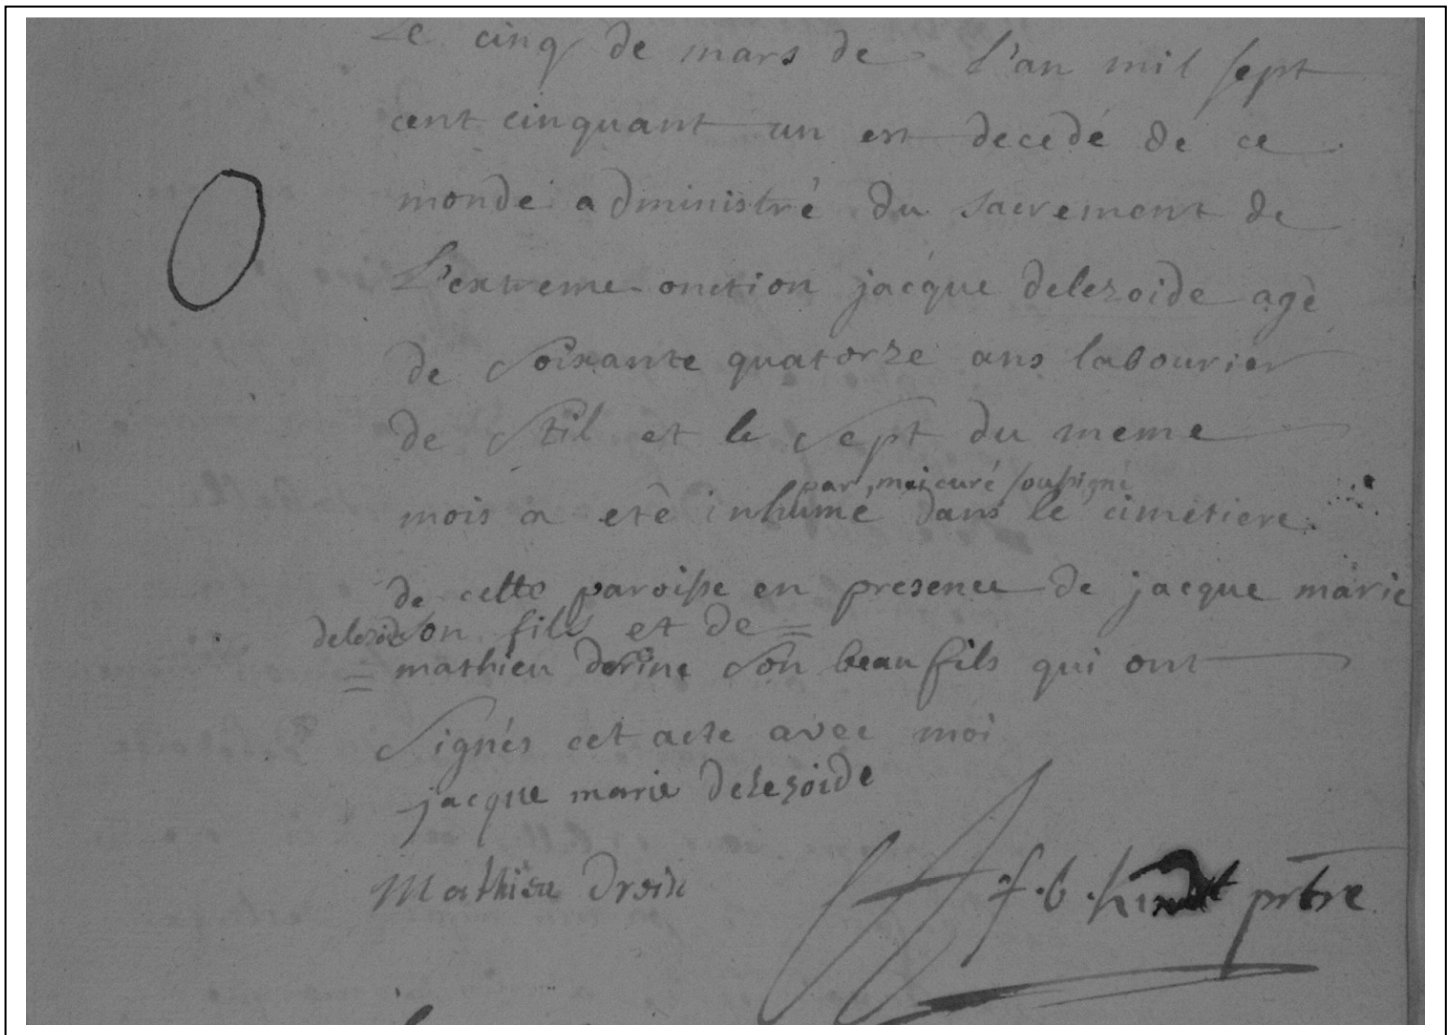 Le cinq de mars de l'an mil sept
cent cinquant un est decedé de ce
monde administré du sacrement de
L'extreme onction jacque delezoide agè
de soixante quatorze ans labourier
de Stil et le sept du meme
par moi curé soussigné
mois a eté inhumé dans le cimetiere
de cette paroisse en presence de jacque marie
delezoide son fils et de =
= mathieu derine son beau fils qui ont
signés cet acte avec moi
jacque marie delezoide
Mathieu
f. b. prbtre